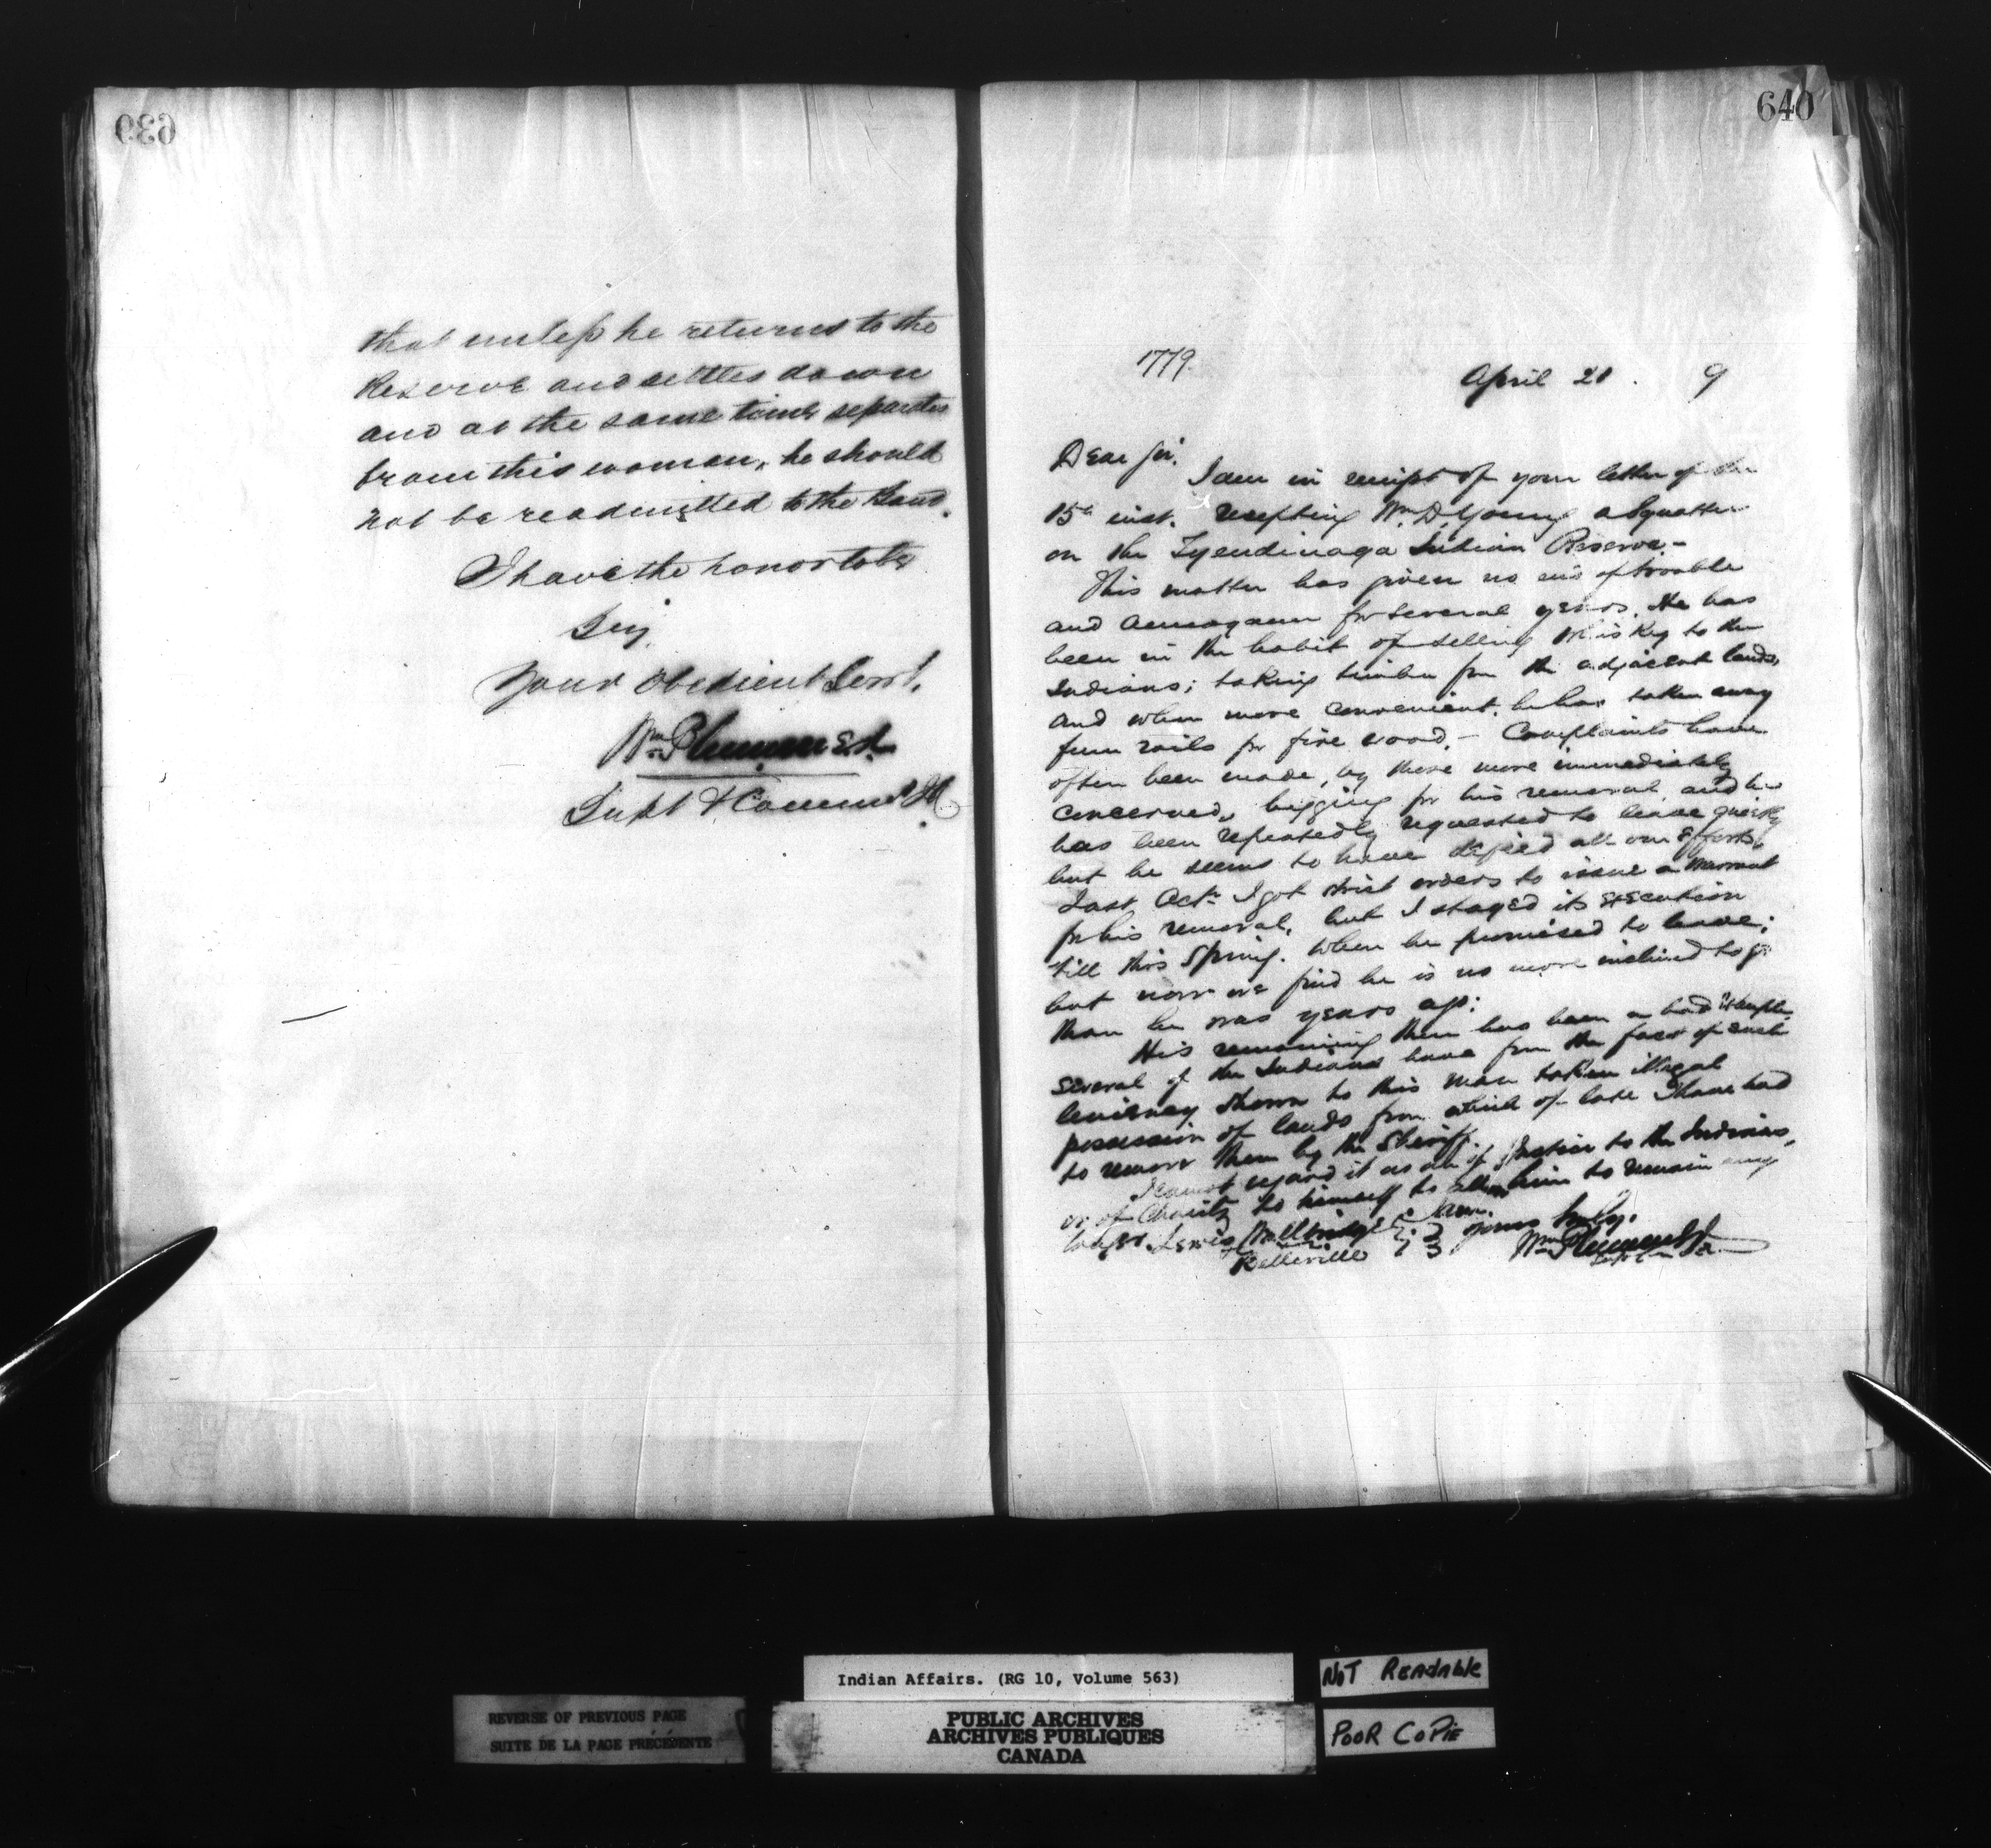 639
that unless he returns to the
Reserve and settles down
and at the same time separates
from this woman, he should
not be readmitted to the Band.
I have the honor to be
Sir,
Your Obedient Servt.
Wm Plummer
Supt & Commr
640
1779.
April 21. 9
Dear Sir.
I am in receipt of your letter of the
15th inst. respecting Wm. D. Young a Squatter
on the Tyendinaga Indian Reserve.-
This matter has given no end of trouble
and annoyance for several years. He has
been in the habit of selling Whiskey to the
Indians; taking timber from the adjacent lands,
and when more convenient, he has taken away
fence rails for fire wood. - Complaints have
often been made, by those more immediately
concerned, begging for his removal, and he
has been repeatedly requested to leave quietly
but he seems to have defied all our efforts.
Last Octr. I got strict orders to issue a Warrant
for his removal, but I stayed its execution
till this Spring. When he promised to leave;
but now we find he is no more inclined to go
than he was years ago:
His remaining there has been a bad example
several of the Indians have from the fact of such
leniency shown to this man taken illegal
possession of lands from which of late I have had
to remove them by the Sheriff.
I cannot regard it as an of Justice to the Indians,
or of Charity to himself to allow him to remain any
longer. Lewis Wallbridge
yours truly.
Belleville
Wm Plummer
Indian Affairs. (RG 10, Volume 563)
NOT READABLE
REVERSE OF PREVIOUS PAGE
SUITE DE LA PAGE PRÉCÉDENTE
PUBLIC ARCHIVES
ARCHIVES PUBLIQUES
CANADA
POOR COPIE